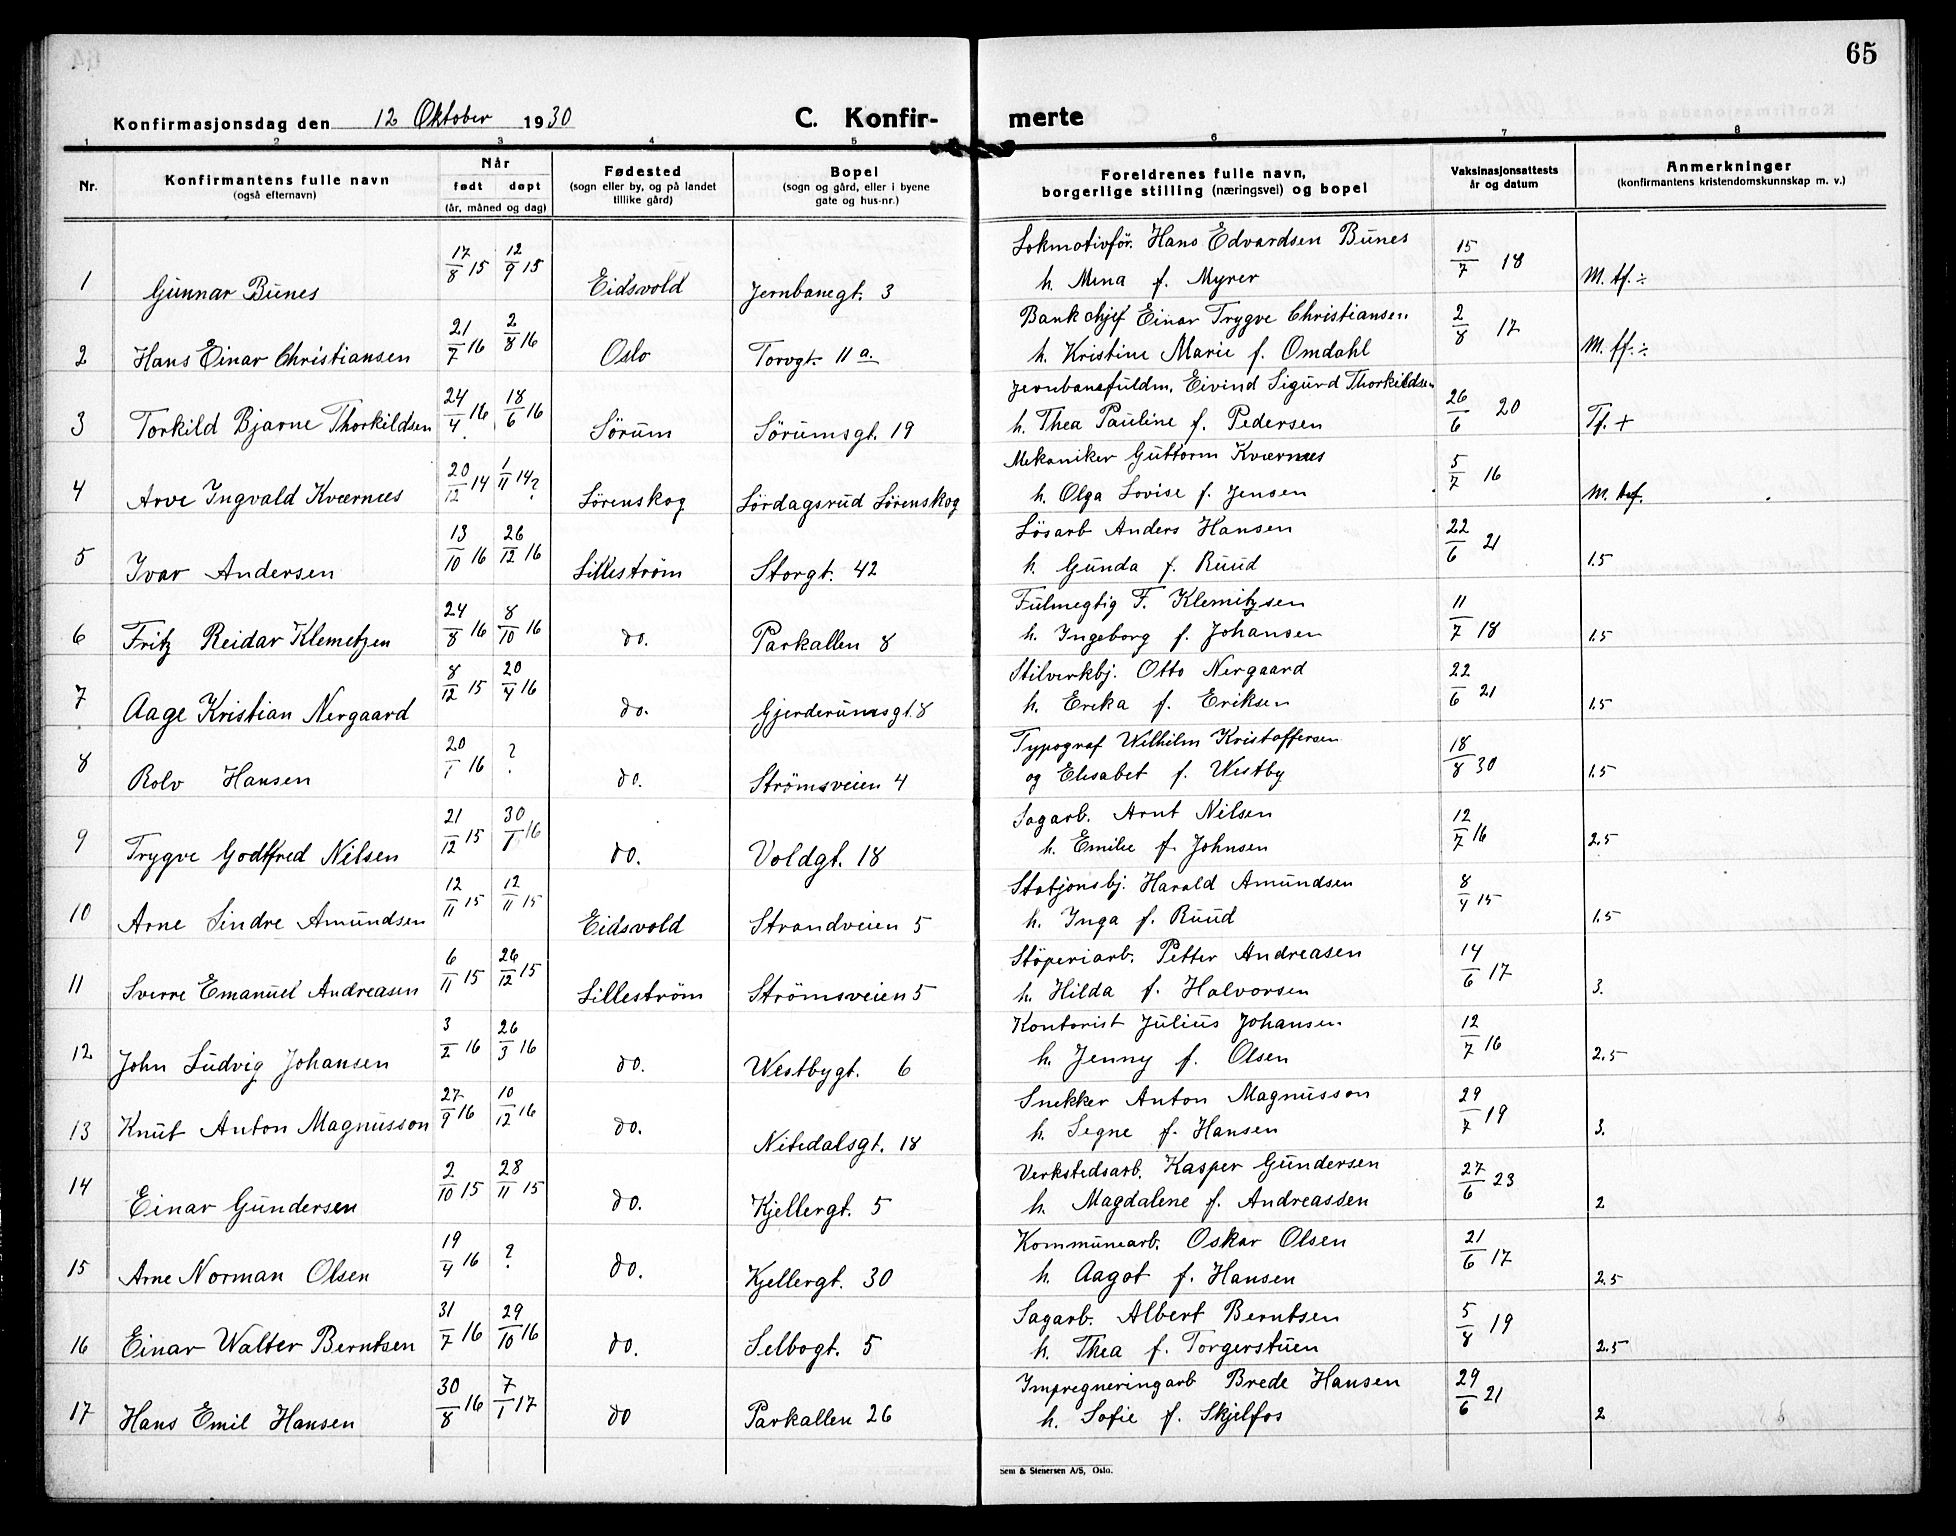 65
Konfirmasjonsdag den 12 Oktober 1930 C. Konfir- merte
1 2 3 4 5 6 7 8
Nr. Konfirmantens fulle navn (også efternavn) Når født døpt (år, måned og dag) Fødested (sogn eller by, og på landet tillike gård) Bopel (sogn og gård, eller i byene gate og hus-nr.) Foreldrenes fulle navn, borgerlige stilling (næringsvei) og bopel Vaksinasjonsattests år og datum Anmerkninger (konfirmantens kristendomskunnskap m. v.)
1 Gunnar Bunes 17/8 15 12/9 15 Eidsvold Jernbanegt. 3 Lokmotivför. Hans Edvardsen Bunes
h. Mena f. Myrer 15/7 18 M. tf. ÷
2 Hans Einar Christiansen 21/7 16 2/8 16 Oslo Torvgt. 11 a. Bankchjef Einar Trygve Christiansen
h. Kristine Marie f. Omdahl 2/8 17 M. tf. ÷
3 Torkild Bjarne Thorkildsen 24/4 16 18/6 16 Sørum Sørumsgt. 19 Jernbanefuldm. Eivind Sigurd Thorkildsen
h. Thea Pauline f. Pedersen 26/6 20 Tf. +
4 Arve Ingvald Kværnes 20/12 14 1/11 14? Lørenskog Lördagsrud Lörenskog Mekaniker Guttorm Kværnes
h. Olga Lovise f. Jensen 5/7 16 M.
5 Ivar Andersen 13/10 16 26/12 16 Lilleström Storgt. 42 Lösarb Anders Hansen
h. Gunda f. Ruud 22/6 21 1.5
6 Fritz Reidar Klemetzen 24/8 16 8/10 16 do. Parkallen 8 Fulmegtig F. Klemitzsen
h. Ingeborg f. Johansen 11/7 18 1.5
7 Aage Kristian Nergaard 8/12 15 20/4 16 do. Gjerderumsgt. 8 Stilverkbj. Otto Nergaard
h. Erika f. Eriksen 22/6 21 1.5
8 Rolv Hansen 20/1 16 ? do. Strømsveien 4 Typograf Wilhilm Kristoffersen
og Elisabet f. Westby 18/8 30 1.5
9 Trygve Godtfred Nilsen 21/12 15 30/1 16 do. Voldgt. 18 Sagarb. Arnt Nilsen
h. Emilie f. Johnsen 12/7 16 2.5
10 Arne Sindre Amundsen 12/11 15 12/11 15 Eidsvold Strandveien 5 Statjonsbj. Harald Amundsen
h. Inga f. Ruud 8/4 15 1.5
11 Sverre Emanuel Andreasen 6/11 15 26/12 15 Lilleström Strömsveien 5 Stöperiarb. Petter Andreasen
h. Hilda f. Halvorsen 14/6 17 3.
12 John Ludvig Johansen 3/2 16 26/3 16 do. Westbygt. 6 Kontorist Julius Johansen
h. Jenny f. Olsen 12/7 16 2.5
13 Knut Anton Magnusson 27/9 16 10/12 16 do. Nitedalsgt. 18 Snekker Anton Magnusson
h. Segne f. Hansen 29/7 19 3.
14 Einar Gundersen 2/10 15 28/11 15 do. Kjellergt. 5 Verkstedsarb. Kasper Gundersen
h. Magdalene f. Andreassen 27/6 23 2
15 Arne Norman Olsen 19/4 16 ? do. Kjellergt. 30 Kommunearb. Oskar Olsen
h. Aagot f. Hansen 21/6 17 2.5
16 Einar Walter Berntsen 31/7 16 29/10 16 do. Selbogt. 5 Sagarb. Albert Berntsen
h. Thea f. Torgerstuen 5/8 19 2.5
17 Hans Emil Hansen 30/8 16 7/1 17 do Parkallen 26 Impregneringarb Brede Hansen
h. Sofie f. Skjelfos 29/6 21 2
Sem & Stenersen A/S, Oslo.